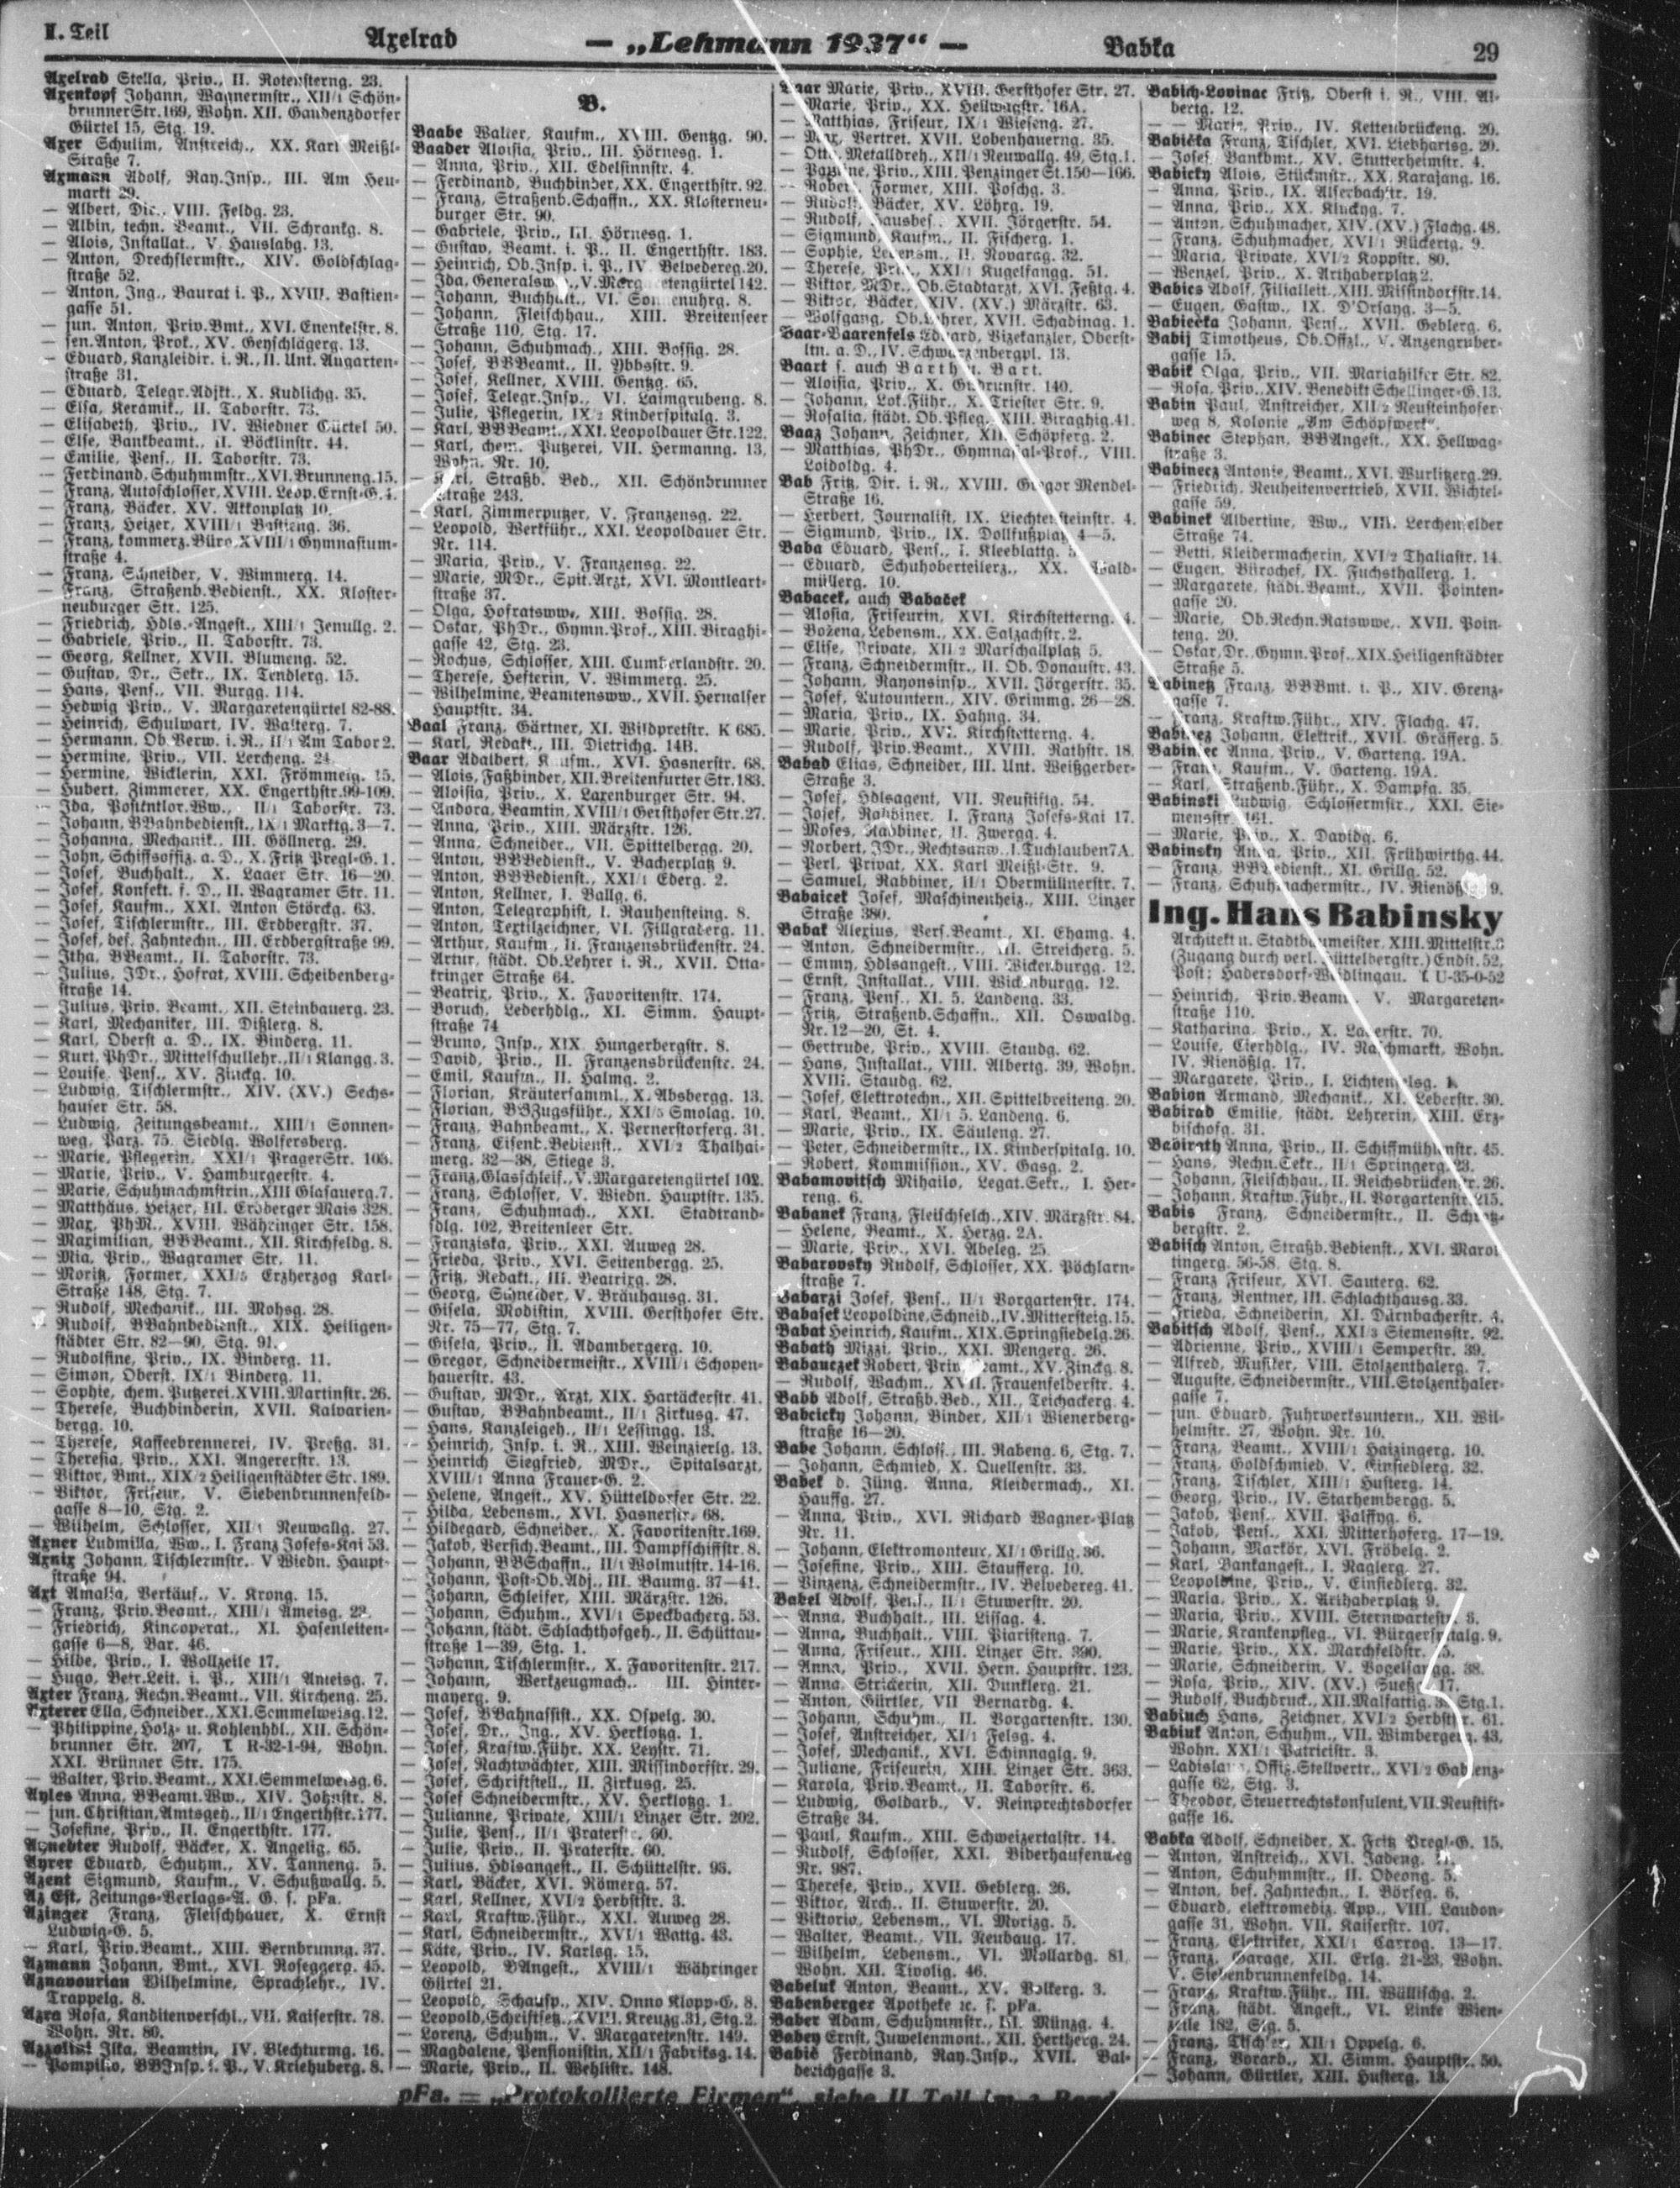 I. Teil
Axelrad
— „Lehmann 1937“ —
Babka
29
Axelrad Stella, Priv., II. Rotensterng. 23.
Axenkopf Johann, Wagnermstr., XII/1 Schön-
brunner Str. 169, Wohn. XII. Gaudenzdorfer
Gürtel 15, Stg. 19.
Axer Schulim, Anstreich., XX. Karl Meißl-
Straße 7.
Axmann Adolf, Ray.Insp., III. Am Heu-
markt 29.
— Albert, Dir., VIII. Feldg. 23.
— Albin, techn. Beamt., VII. Schrankg. 8.
— Alois, Installat., V. Hauslabg. 13.
— Anton, Drechslermstr., XIV. Goldschlag-
straße 52.
— Anton, Ing., Baurat i. P., XVIII. Bastien-
gasse 51.
— jun. Anton, Priv.Bmt., XVI. Enenkelstr. 8.
— sen. Anton, Prok., XV. Geyschlägerg. 13.
— Eduard, Kanzleidir. i. R., II. Unt. Augarten-
straße 31.
— Eduard, Telegr.Adjkt., X. Kudlichg. 35.
— Elsa, Keramik., II. Taborstr. 73.
— Elisabeth, Priv., IV. Wiedner Gürtel 50.
— Else, Bankbeamt., II. Böcklinstr. 44.
— Emilie, Pens., II. Taborstr. 73.
— Ferdinand, Schuhmmstr., XVI. Brunneng. 15.
— Franz, Autoschlosser, XVIII. Leop.Ernst-G. 4.
— Franz, Bäcker, XV. Akkonplatz 10.
— Franz, Heizer, XVIII/1 Bastieng. 36.
— Franz, kommerz.Büro, XVIII/1 Gymnasium-
straße 4.
— Franz, Schneider, V. Wimmerg. 14.
— Franz, Straßenb.Bedienst., XX. Kloster-
neuburger Str. 125.
— Friedrich, Hdls.-Angest., XIII/1 Jenullg. 2.
— Gabriele, Priv., II. Taborstr. 73.
— Georg, Kellner, XVII. Blumeng. 52.
— Gustav, Dr., Sekr., IX. Tendlerg. 15.
— Hans, Pens., VII. Burgg. 114.
— Hedwig Priv., V. Margaretengürtel 82-88.
— Heinrich, Schulwart, IV. Walterg. 7.
— Hermann, Ob.Verw. i. R., II/1 Am Tabor 2.
— Hermine, Priv., VII. Lercheng. 24.
— Hermine, Wicklerin, XXI. Frömmelg. 15.
— Hubert, Zimmerer, XX. Engerthstr. 99-109.
— Ida, Postkntlor.Ww., II/1 Taborstr. 73.
— Johann, BBahnbedienst., IX/1 Marktg. 3—7.
— Johanna, Mechanik., III. Göllnerg. 29.
— John, Schiffsoffiz. a. D., X. Fritz Pregl-G. 1.
— Josef, Buchhalt., X. Laaer Str. 16—20.
— Josef, Konfekt. f. D., II. Wagramer Str. 11.
— Josef, Kaufm., XXI. Anton Störckg. 63.
— Josef, Tischlermstr., III. Erdbergstr. 37.
— Josef, bef. Zahntechn., III. Erdbergstraße 99.
— Itha, BBeamt., II. Taborstr. 73.
— Julius, JDr., Hofrat, XVIII. Scheibenberg-
straße 14.
— Julius, Priv. Beamt., XII. Steinbauerg. 23.
— Karl, Mechaniker, III. Dißlerg. 8.
— Karl, Oberst a. D., IX. Binderg. 11.
— Kurt, PhDr., Mittelschullehr., II/1 Klangg. 3.
— Louise, Pens., XV. Zinckg. 10.
— Ludwig, Tischlermstr., XIV. (XV.) Sechs-
hauser Str. 58.
— Ludwig, Zeitungsbeamt., XIII/1 Sonnen-
weg, Parz. 75. Siedlg. Wolfersberg.
— Marie, Pflegerin, XXI/1 Prager Str. 103.
— Marie, Priv., V. Hamburgerstr. 4.
— Marie, Schuhmachmstrin., XIII Glasauerg. 7.
— Matthäus, Heizer, III. Erdberger Mais 328.
— Max, PhM., XVIII. Währinger Str. 158.
— Maximilian, BBBeamt., XII. Kirchfeldg. 8.
— Mia, Priv., Wagramer Str. 11.
— Moritz, Former, XXI/5 Erzherzog Karl-
Straße 148, Stg. 7.
— Rudolf, Mechanik., III. Mohsg. 28.
— Rudolf, BBahnbedienst., XIX. Heiligen-
städter Str. 82—90, Stg. 91.
— Rudolfine, Priv., IX. Binderg. 11.
— Simon, Oberst, IX/1 Binderg. 11.
— Sophie, chem. Putzerei, XVIII. Martinstr. 26.
— Therese, Buchbinderin, XVII. Kalvarien-
bergg. 10.
— Therese, Kaffeebrennerei, IV. Preßg. 31.
— Theresia, Priv., XXI. Angererstr. 13.
— Viktor, Bmt., XIX/2 Heiligenstädter Str. 189.
— Viktor, Friseur, V. Siebenbrunnenfeld-
gasse 8—10, Stg. 2.
— Wilhelm, Schlosser, XII/1 Neuwallg. 27.
Axner Ludmilla, Ww., I. Franz Josefs-Kai 53.
Axnix Johann, Tischlermstr., V Wiedn. Haupt-
straße 94.
Axt Amalia, Verkäuf., V. Krong. 15.
— Franz, Priv.Beamt., XIII/1 Ameisg. 22.
— Friedrich, Kinooperat., XI. Hasenleiten-
gasse 6—8, Bar. 46.
— Hilde, Priv., I. Wollzeile 17.
— Hugo, Betr.Leit. i. P., XIII/1 Ameisg. 7.
Axter Franz, Rechn.Beamt., VII. Kircheng. 25.
Axterer Ella, Schneider., XXI. Semmelweisg. 12.
— Philippine, Holz- u. Kohlenhdl., XII. Schön-
brunner Str. 207, T. R-32-1-94, Wohn.
XXI. Brünner Str. 175.
— Walter, Priv.Beamt., XXI. Semmelweisg. 6.
Ayles Anna, BBeamt.Ww., XIV. Johnstr. 8.
— jun. Christian, Amtsgeh., II/1 Engerthstr. 177.
— Josefine, Priv., II. Engerthstr. 177.
Rudolf, Bäcker, X. Angelig. 65.
Ayrer Eduard, Schuhm., XV. Tanneng. 5.
Azent Sigmund, Kaufm., V. Schußwallg. 5.
Az Est, Zeitungs-Verlags-A. G. s. pFa.
Azinger Franz, Fleischhauer, X. Ernst
Ludwig-G. 5.
— Karl, Priv.Beamt., XIII. Bernbrunng. 37.
Azmann Johann, Bmt., XVI. Roseggerg. 45.
Aznavourian Wilhelmine, Sprachlehr., IV.
Trappelg. 8.
Azra Rosa, Kanditenverschl., VII. Kaiserstr. 78.
Wohn. Nr. 80.
Azzolini Ilka, Beamtin, IV. Blechturmg. 16.
— Pompilio, BBInsp. i. P., V. Kriehuberg. 8.
B.
Baabe Walter, Kaufm., XVIII. Gentzg. 90.
Baader Aloisia, Priv., III. Hörnesg. 1.
— Anna, Priv., XII. Edelsinnstr. 4.
— Ferdinand, Buchbinder, XX. Engerthstr. 92.
— Franz, Straßenb.Schaffn., XX. Klosterneu-
burger Str. 90.
— Gabriele, Priv., III. Hörnesg. 1.
— Gustav, Beamt. i. P., II. Engerthstr. 183.
— Heinrich, Ob.Insp. i. P., IV. Belvedereg. 20.
— Ida, V. Margaretengürtel 142.
— Johann, Buchhalt., VI. Sonnenuhrg. 8.
— Johann, Fleischhau., XIII. Breitenseer
Straße 110, Stg. 17.
— Johann, Schuhmach., XIII. Bossig. 28.
— Josef, BBBeamt., II. Ybbsstr. 9.
— Josef, Kellner, XVIII. Gentzg. 65.
— Josef, Telegr.Insp., VI. Laimgrubeng. 8.
— Julie, Pflegerin, IX/2 Kinderspitalg. 3.
— Karl, BBBeamt., XXI. Leopoldauer Str. 122.
— Karl, chem. Putzerei, VII. Hermanng. 13,
Wohn. Nr. 10.
— Karl, Straßb. Bed., XII. Schönbrunner
Straße 243.
— Karl, Zimmerputzer, V. Franzensg. 22.
— Leopold, Werkführ., XXI. Leopoldauer Str.
Nr. 114.
— Maria, Priv., V. Franzensg. 22.
— Marie, MDr., Spit.Arzt, XVI. Montleart-
straße 37.
— Olga, Hofratswwe, XIII. Bossig. 28.
— Oskar, PhDr., Gymn.Prof., XIII. Biraghi-
gasse 42, Stg. 23.
— Rochus, Schlosser, XIII. Cumberlandstr. 20.
— Therese, Hefterin, V. Wimmerg. 25.
— Wilhelmine, Beamtensww., XVII. Hernalser
Hauptstr. 34.
Baal Franz, Gärtner, XI. Wildpretstr. K 685.
— Karl, Redakt., III. Dietrichg. 14B.
Baar Adalbert, Kaufm., XVI. Hasnerstr. 68.
— Alois, Faßbinder, XII. Breitenfurter Str. 183.
— Aloisia, Priv., X. Laxenburger Str. 94.
— Andora, Beamtin, XVIII/1 Gersthofer Str. 27.
— Anna, Priv., XIII. Märzstr. 126.
— Anna, Schneider., VII. Spittelbergg. 20.
— Anton, BBBedienst., V. Bacherplatz 9.
— Anton, BBBedienst., XXI/1 Ederg. 2.
— Anton, Kellner, I. Ballg. 6.
— Anton, Telegraphist, I. Rauhensteing. 8.
— Anton, Textilzeichner, VI. Fillgraderg. 11.
— Arthur, Kaufm., II. Franzensbrückenstr. 24.
— Artur, städt. Ob.Lehrer i. R., XVII. Otta-
kringer Straße 64.
— Beatrix, Priv., X. Favoritenstr. 174.
— Boruch, Lederhdlg., XI. Simm. Haupt-
straße 74
— Bruno, Insp., XIX. Hungerbergstr. 8.
— David, Priv., II. Franzensbrückenstr. 24.
— Emil, Kaufm., II. Halmg. 2.
— Florian, Kräutersamml., X. Absbergg. 13.
— Florian, BBZugsführ., XXI/5 Smolag. 10.
— Franz, Bahnbeamt., X. Pernerstorferg. 31.
— Franz, Eisenb.Bedienst., XVI/2 Thalhai-
merg. 32—38, Stiege 3.
— Franz, Glasschleif., V. Margaretengürtel 102.
— Franz, Schlosser, V. Wiedn. Hauptstr. 135.
— Franz, Schuhmach., XXI. Stadtrand-
sdlg. 102, Breitenleer Str.
— Franziska, Priv., XXI. Auweg 28.
— Frieda, Priv., XVI. Seitenbergg. 25.
— Fritz, Redakt., III. Beatrixg. 28.
— Georg, Schneider, V. Bräuhausg. 31.
— Gisela, Modistin, XVIII. Gersthofer Str.
Nr. 75—77, Stg. 7.
— Gisela, Priv., II. Adambergerg. 10.
— Gregor, Schneidermeistr., XVIII/1 Schopen-
hauerstr. 43.
— Gustav, MDr., Arzt, XIX. Hartäckerstr. 41.
— Gustav, BBahnbeamt., II/1 Zirkusg. 47.
— Hans, Kanzleigeh., II/1 Lessingg. 13.
— Heinrich, Insp. i. R., XIII. Weinzierlg. 13.
— Heinrich Siegfried, MDr., Spitalsarzt,
XVIII/1 Anna Frauer-G. 2.
— Helene, Angest., XV. Hütteldorfer Str. 22.
— Hilda, Lebensm., XVI. Hasnerstr. 68.
— Hildegard, Schneider., X. Favoritenstr. 169.
— Jakob, Versich.Beamt., III. Dampfschiffstr. 8.
— Johann, BBSchaffn., II/1 Wolmutstr. 14-16.
— Johann, Post-Ob.Adj., III. Baumg. 37—41.
— Johann, Schleifer, XIII. Märzstr. 126.
— Johann, Schuhm., XVI/1 Speckbacherg. 53.
— Johann, städt. Schlachthofgeh., II. Schüttau-
straße 1—39, Stg. 1.
— Johann, Tischlermstr., X. Favoritenstr. 217.
— Johann, Werkzeugmach., III. Hinter-
mayerg. 9.
— Josef, BBahnassist., XX. Ospelg. 30.
— Josef, Dr., Ing., XV. Herklotzg. 1.
— Josef, Kraftw.Führ. XX. Leystr. 71.
— Josef, Nachtwächter, XIII. Missindorfstr. 29.
— Josef, Schriftstell., II. Zirkusg. 25.
— Josef Schneidermstr., XV. Herklotzg. 1.
— Julianne, Private, XIII/1 Linzer Str. 202.
— Julie, Pens., II/1 Praterstr. 60.
— Julie, Priv., II. Praterstr. 60.
— Julius, Hdlsangest., II. Schüttelstr. 93.
— Karl, Bäcker, XVI. Römerg. 57.
— Karl, Kellner, XVI/2 Herbststr. 3.
— Karl, Kraftw.Führ., XXI. Auweg 28.
— Karl, Schneidermstr., XVI/1 Wattg. 43.
— Käte, Priv., IV. Karlsg. 15.
— Leopold, BAngest., XVIII/1 Währinger
Gürtel 21.
— Leopold, Schausp., XIV. Onno Klopp-G. 8.
— Leopold, Schriftsetz., XVIII. Kreuzg. 31, Stg. 2.
— Lorenz, Schuhm., V. Margaretenstr. 149.
— Magdalene, Pensionistin, XII/1 Fabriksg. 14.
— Marie, Priv., II. Wehlistr. 148.
Baar Marie, Priv., XVIII. Gersthofer Str. 27.
— Marie, Priv., XX. Hellwagstr. 16A.
— Matthias, Friseur, IX/1 Wieseng. 27.
— Max, Vertret. XVII. Lobenhauerng. 35.
— Otto, Metalldreh., XII/1 Neuwallg. 49, Stg. 1.
— Priv., XIII. Penzinger St. 150—166.
— Robert, Former, XIII. Poschg. 3.
— Rudolf, Bäcker, XV. Löhrg. 19.
— Rudolf, Hausbes., XVII. Jörgerstr. 54.
— Sigmund, Kaufm., II. Fischerg. 1.
— Sophie, Lebensm., II. Novarag. 32.
— Therese, Priv., XXI/1 Kugelfangg. 51.
— Viktor, MDr., Ob.Stadtarzt, XVI. Feßtg. 4.
— Viktor, Bäcker, XIV. (XV.) Märzstr. 63.
— Wolfgang, Ob.Lehrer, XVII. Schadinag. 1.
Baar-Baarenfels Eduard, Vizekanzler, Oberst-
ltn. a. D., IV. Schwarzenbergpl. 13.
Baart s. auch Barth u. Bart.
— Aloisia, Priv., X. Gudrunstr. 140.
— Johann, Lok.Führ., X. Triester Str. 9.
— Rosalia, städt. Ob.Pfleg., XIII. Biraghig. 41.
Baaz Johann, Zeichner, XII. Schöpferg. 2.
— Matthias, PhDr., Gymnasial-Prof., VIII.
Loidoldg. 4.
Bab Fritz, Dir. i. R., XVIII. Gregor Mendel-
Straße 16.
— Herbert, Journalist, IX. Liechtensteinstr. 4.
— Sigmund, Priv., IX. Dollfußplatz 4—5.
Baba Eduard, Pens., I. Kleeblattg.
— Eduard, Schuhoberteilerz., XX. Wald-
müllerg. 10.
Babacek, auch Babaček
— Aloisia, Friseurin, XVI. Kirchstetterng. 4.
— Božena, Lebensm., XX. Salzachstr. 2.
— Elise, Private, XII/2 Marschallplatz 5.
— Franz, Schneidermstr., II. Ob. Donaustr. 43.
— Johann, Rayonsinsp., XVII. Jörgerstr. 35.
— Josef, Autountern., XIV. Grimmg. 26—28.
— Maria, Priv., IX. Hahng. 34.
— Marie, Priv., XVI. Kirchstetterng. 4.
— Rudolf, Priv.Beamt., XVIII. Rathstr. 18.
Babad Elias, Schneider, III. Unt. Weißgerber-
Straße 3.
— Josef, Hdlsagent, VII. Neustiftg. 54.
— Josef, Rabbiner, I. Franz Josefs-Kai 17.
— Moses, Rabbiner, II. Zwergg. 4.
— Norbert, JDr., Rechtsanw., I. Tuchlauben 7A.
— Perl, Privat, XX. Karl Meißl-Str. 9.
— Samuel, Rabbiner, II/1 Obermüllnerstr. 7.
Babaicek Josef, Maschinenheiz., XIII. Linzer
Straße 380.
Babak Alexius, Vers.Beamt., XI. Ehamg. 4.
— Anton, Schneidermstr., XII. Streicherg. 5.
— Emmy, Hdlsangest., VIII. Wickenburgg. 12.
— Ernst, Installat., VIII. Wickenburgg. 12.
— Franz, Pens., XI. 5. Landeng. 33.
— Fritz, Straßenb.Schaffn., XII. Oswaldg.
Nr. 12—20, St. 4.
— Gertrude, Priv., XVIII. Staudg. 62.
— Hans, Installat., VIII. Albertg. 39, Wohn.
XVIII. Staudg. 62.
— Josef, Elektrotechn., XII. Spittelbreiteng. 20.
— Karl, Beamt., XI/1 5. Landeng. 6.
— Marie, Priv., IX. Säuleng. 27.
— Peter, Schneidermstr., IX. Kinderspitalg. 10.
— Robert, Kommission., XV. Gasg. 2.
Babamovitsch Mihailo, Legat.Sekr., I. Her-
reng. 6.
Babanek Franz, Fleischselch., XIV. Märzstr. 84.
— Helene, Beamt., X. Herzg. 2A.
— Marie, Priv., XVI. Abeleg. 25.
Babarovsky Rudolf, Schlosser, XX. Pöchlarn-
straße 7.
Babarzi Josef, Pens., II/1 Vorgartenstr. 174.
Babasek Leopoldine, Schneid., IV. Mittersteig. 15.
Babat Heinrich, Kaufm., XIX. Springsiedelg. 26.
Babath Mizzi, Priv., XXI. Mengerg. 26.
Babauczek Robert, Priv.Beamt., XV. Zinckg. 8.
— Rudolf, Wachm., XVII. Frauenfelderstr. 4.
Babb Adolf, Straßb.Bed., XII., Teichackerg. 4.
Babcicky Johann, Binder, XII/1 Wienerberg-
straße 16—20.
Babe Johann, Schloss., III. Rabeng. 6, Stg. 7.
— Johann, Schmied, X. Quellenstr. 33.
Babek d. Jüng. Anna, Kleidermach., XI.
Hauffg. 27.
— Anna, Priv., XVI. Richard Wagner-Platz
Nr. 11.
— Johann, Elektromonteur, XI/1 Grillg. 36.
— Josefine, Priv., XIII. Staufferg. 10.
— Vinzenz, Schneidermstr., IV. Belvedereg. 41.
Babel Adolf, Pens., II/1 Stuwerstr. 20.
— Anna, Buchhalt., III. Lissag. 4.
— Anna, Buchhalt., VIII. Piaristeng. 7.
— Anna, Friseur, XIII. Linzer Str. 390.
— Anna, Priv., XVII. Hern. Hauptstr. 123.
— Anna, Strickerin, XII. Dunklerg. 21.
— Anton, Gürtler, VII Bernardg. 4.
— Johann, Schuhm., II. Vorgartenstr. 130.
— Josef, Anstreicher, XI/1 Felsg. 4.
— Josef, Mechanik., XVI. Schinnaglg. 9.
— Juliane, Friseurin, XIII. Linzer Str. 363.
— Karola, Priv.Beamt., II. Taborstr. 6.
— Ludwig, Goldarb., V. Reinprechtsdorfer
Straße 34.
— Paul, Kaufm., XIII. Schweizertalstr. 14.
— Rudolf, Schlosser, XXI. Biberhaufenweg
Nr. 987.
— Therese, Priv., XVII. Geblerg. 26.
— Viktor, Arch., II. Stuwerstr. 20.
— Viktoria, Lebensm., VI. Morizg. 5.
— Walter, Beamt., VII. Neubaug. 17.
— Wilhelm, Lebensm., VI. Mollardg. 81,
Wohn. XII. Tivolig. 46.
Babeluk Anton, Beamt., XV. Volkerg. 3.
Babenberger Apotheke ic. s. pFa.
Baber Adam, Schuhmmstr., III. Münzg. 4.
Babey Ernst, Juwelenmont., XII. Hertherg. 24.
Babić Ferdinand, Ray.Insp., XVII. Bal-
derichgasse 3.
Babich-Lovinac Fritz, Oberst i. R., VIII. Al-
bertg. 12.
— — Marie, Priv., IV. Kettenbrückeng. 20.
Babička Franz, Tischler, XVI. Liebhartsg. 20.
— Josef, Bankbmt., XV. Stutterheimstr. 4.
Babicky Alois, Stückmstr., XX. Karajang. 16.
— Anna, Priv., IX. Alserbachstr. 19.
— Anna, Priv., XX. Kluckyg. 7.
— Anton, Schuhmacher, XIV. (XV.) Flachg. 48.
— Franz, Schuhmacher, XVI/1 Rückertg. 9.
— Maria, Private, XVI/2 Koppstr. 80.
— Wenzel, Priv., X. Arthaberplatz 2.
Babics Adolf, Filialleit., XIII. Missindorfstr. 14.
— Eugen, Gastw., IX. D'Orsayg. 3—5.
Babiečka Johann, Pens., XVII. Geblerg. 6.
Babij Timotheus, Ob.Offzl., V. Anzengruber-
gasse 15.
Babik Olga, Priv., VII. Mariahilfer Str. 82.
— Rosa, Priv., XIV. Benedikt Schellinger-G. 13.
Babin Paul, Anstreicher, XII/2 Neusteinhofer-
weg 8, Kolonie „Am Schöpfwerk“.
Babinec Stephan, BBAngest., XX. Hellwag-
straße 3.
Babinecz Antonie, Beamt., XVI. Wurlitzerg. 29.
— Friedrich, Neuheitenvertrieb, XVII. Wichtel-
gasse 59.
Babinek Albertine, Ww., VIII. Lerchenfelder
Straße 74.
— Betti, Kleidermacherin, XVI/2 Thaliastr. 14.
— Eugen, Bürochef, IX. Fuchsthallerg. 1.
— Margarete, städt.Beamt., XVII. Pointen-
gasse 20.
— Marie, Ob.Rechn.Ratswwe., XVII. Poin-
teng. 20.
— Oskar, Dr., Gymn.Prof., XIX. Heiligenstädter
Straße 5.
Babinetz Franz, BBBmt. i. P., XIV. Grenz-
gasse 7.
— Franz, Kraftw.Führ., XIV. Flachg. 47.
Babinez Johann, Elektrik., XVII. Gräfferg. 5.
Babinzec Anna, Priv., V. Garteng. 19A.
— Franz, Kaufm., V. Garteng. 19A.
— Karl, Straßenb.Führ., X. Dampfg. 35.
Babinski Ludwig, Schlossermstr., XXI. Sie-
mensstr. 161.
— Marie, Priv., X. Davidg. 6.
Babinsky Anna, Priv., XII. Frühwirthg. 44.
— Franz, BBBedienst., XI. Grillg. 52.
— Franz, Schuhmachermstr., IV. Rienößlg. 9.
Ing. Hans Babinsky
Architekt u. Stadtbaumeister, XIII. Mittelstr.
(Zugang durch verl. Hüttelbergstr.) Endst. 52,
Post: Hadersdorf-Weidlingau. T. U-35-0-52
— Heinrich, Priv.Beamt., V. Margareten-
straße 110.
— Katharina, Priv., X. Laxerstr. 70.
— Louise, Eierhdlg., IV. Naschmarkt, Wohn.
IV. Rienößlg. 17.
— Margarete, Priv., I. Lichtenfelsg. 1.
Babion Armand, Mechanik., XI. Leberstr. 30.
Babirad Emilie, städt. Lehrerin, XIII. Erz-
bischofg. 31.
Babirath Anna, Priv., II. Schiffmühlenstr. 45.
— Hans, Rechn.Sekr., II/1 Springerg. 23.
— Johann, Fleischhau., II. Reichsbrückenstr. 26.
— Johann, Kraftw.Führ., II. Vorgartenstr. 215.
Babis Franz, Schneidermstr., II. Schrotz-
bergstr. 2.
Babisch Anton, Straßb.Bedienst., XVI. Marol-
tingerg. 56-58, Stg. 8.
— Franz Friseur, XVI. Sauterg. 62.
— Franz, Rentner, III. Schlachthausg. 33.
— Frieda, Schneiderin, XI. Dürnbacherstr. 4.
Babitsch Adolf, Pens., XXI/3 Siemensstr. 92.
— Adrienne, Priv., XVIII/1 Semperstr. 39.
— Alfred, Musiker, VIII. Stolzenthalerg. 7.
— Auguste, Schneidermstr., VIII. Stolzenthaler-
gasse 7.
— jun. Eduard, Fuhrwerksuntern., XII. Wil-
helmstr. 27, Wohn. Nr. 10.
— Franz, Beamt., XVIII/1 Haizingerg. 10.
— Franz, Goldschmied, V. Einsiedlerg. 32.
— Franz, Tischler, XIII/1 Husterg. 14.
— Georg, Priv., IV. Starhembergg. 5.
— Jakob, Pens., XVII. Palffyg. 6.
— Jakob, Pens., XXI. Mitterhoferg. 17—19.
— Johann, Markör, XVI. Fröbelg. 2.
— Karl, Bankangest., I. Naglerg. 27.
— Leopoldine, Priv., V. Einsiedlerg. 32.
— Maria, Priv., X. Arthaberplatz 9.
— Maria, Priv., XVIII. Sternwartestr. 3.
— Marie, Krankenpfleg., VI. Bürgerspitalg. 9.
— Marie, Priv., XX. Marchfeldstr.
— Marie, Schneiderin, V. Vogelsangg. 38.
— Rosa, Priv., XIV. (XV.) Sueßg. 17.
— Rudolf, Buchdruck., XII. Malfattig. Stg. 1.
Babiuch Hans, Zeichner, XVI/2 Herbststr. 61.
Babiuk Anton, Schuhm., VII. Wimbergerg. 43,
Wohn. XXI/1 Patrizistr. 3.
— Ladislaus, Offiz.Stellvertr., XVI/2 Gablenz-
gasse 62, Stg. 3.
— Theodor, Steuerrechtskonsulent, VII. Neustift-
gasse 16.
Babka Adolf, Schneider, X. Fritz Pregl-G. 15.
— Anton, Anstreich., XVI. Jadeng.
— Anton, Schuhmmstr., II. Odeong. 5.
— Anton, bef. Zahntechn., I. Börseg. 6.
— Eduard, elektromediz. App., VIII. Laudon-
gasse 31, Wohn. VII. Kaiserstr. 107.
— Franz, Elektriker, XXI/1 Carrog. 13—17.
— Franz, Garage, XII. Erlg. 21-23, Wohn.
V. Siebenbrunnenfeldg. 14.
— Franz, Kraftw.Führ., III. Wällischg. 2.
— Franz, städt. Angest., VI. Linke Wien-
zeile 182, Stg. 5.
— Franz, Tischler, XII/1 Oppelg. 6.
— Franz, Vorarb., XI. Simm. Hauptstr. 50.
— Johann, Gürtler, XIII. Husterg. 13.
pFa. = „Protokollierte Firmen“, siehe II. Teil im 2. Band